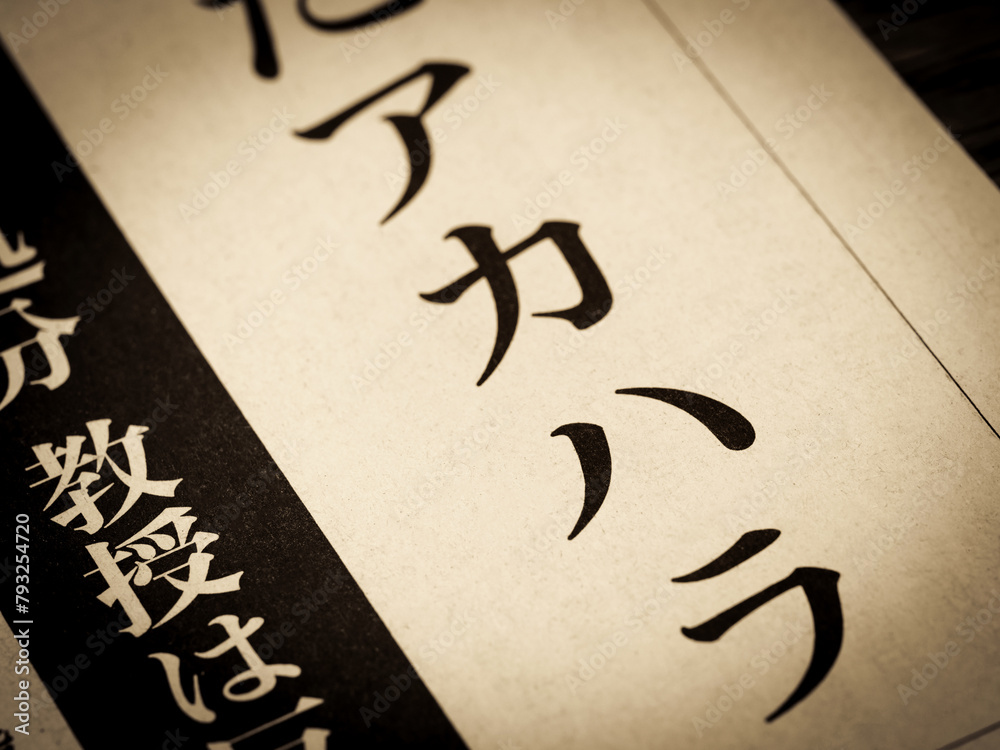 アカハラ
分 教授は
Adobe Stock | #793254720